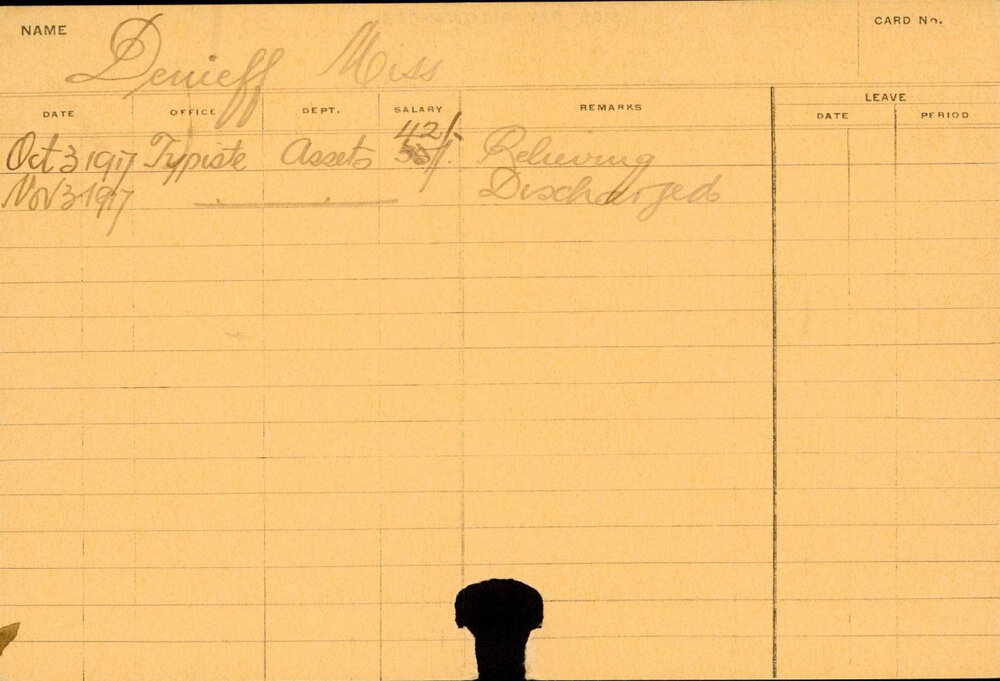 NAME Denieff Miss CARD No.
DATE OFFICE DEPT. SALARY REMARKS LEAVE
DATE PERIOD
42/-
Oct 3 1917 Typiste Assets 50/- Relieving
Nov 3 1917 Discharged